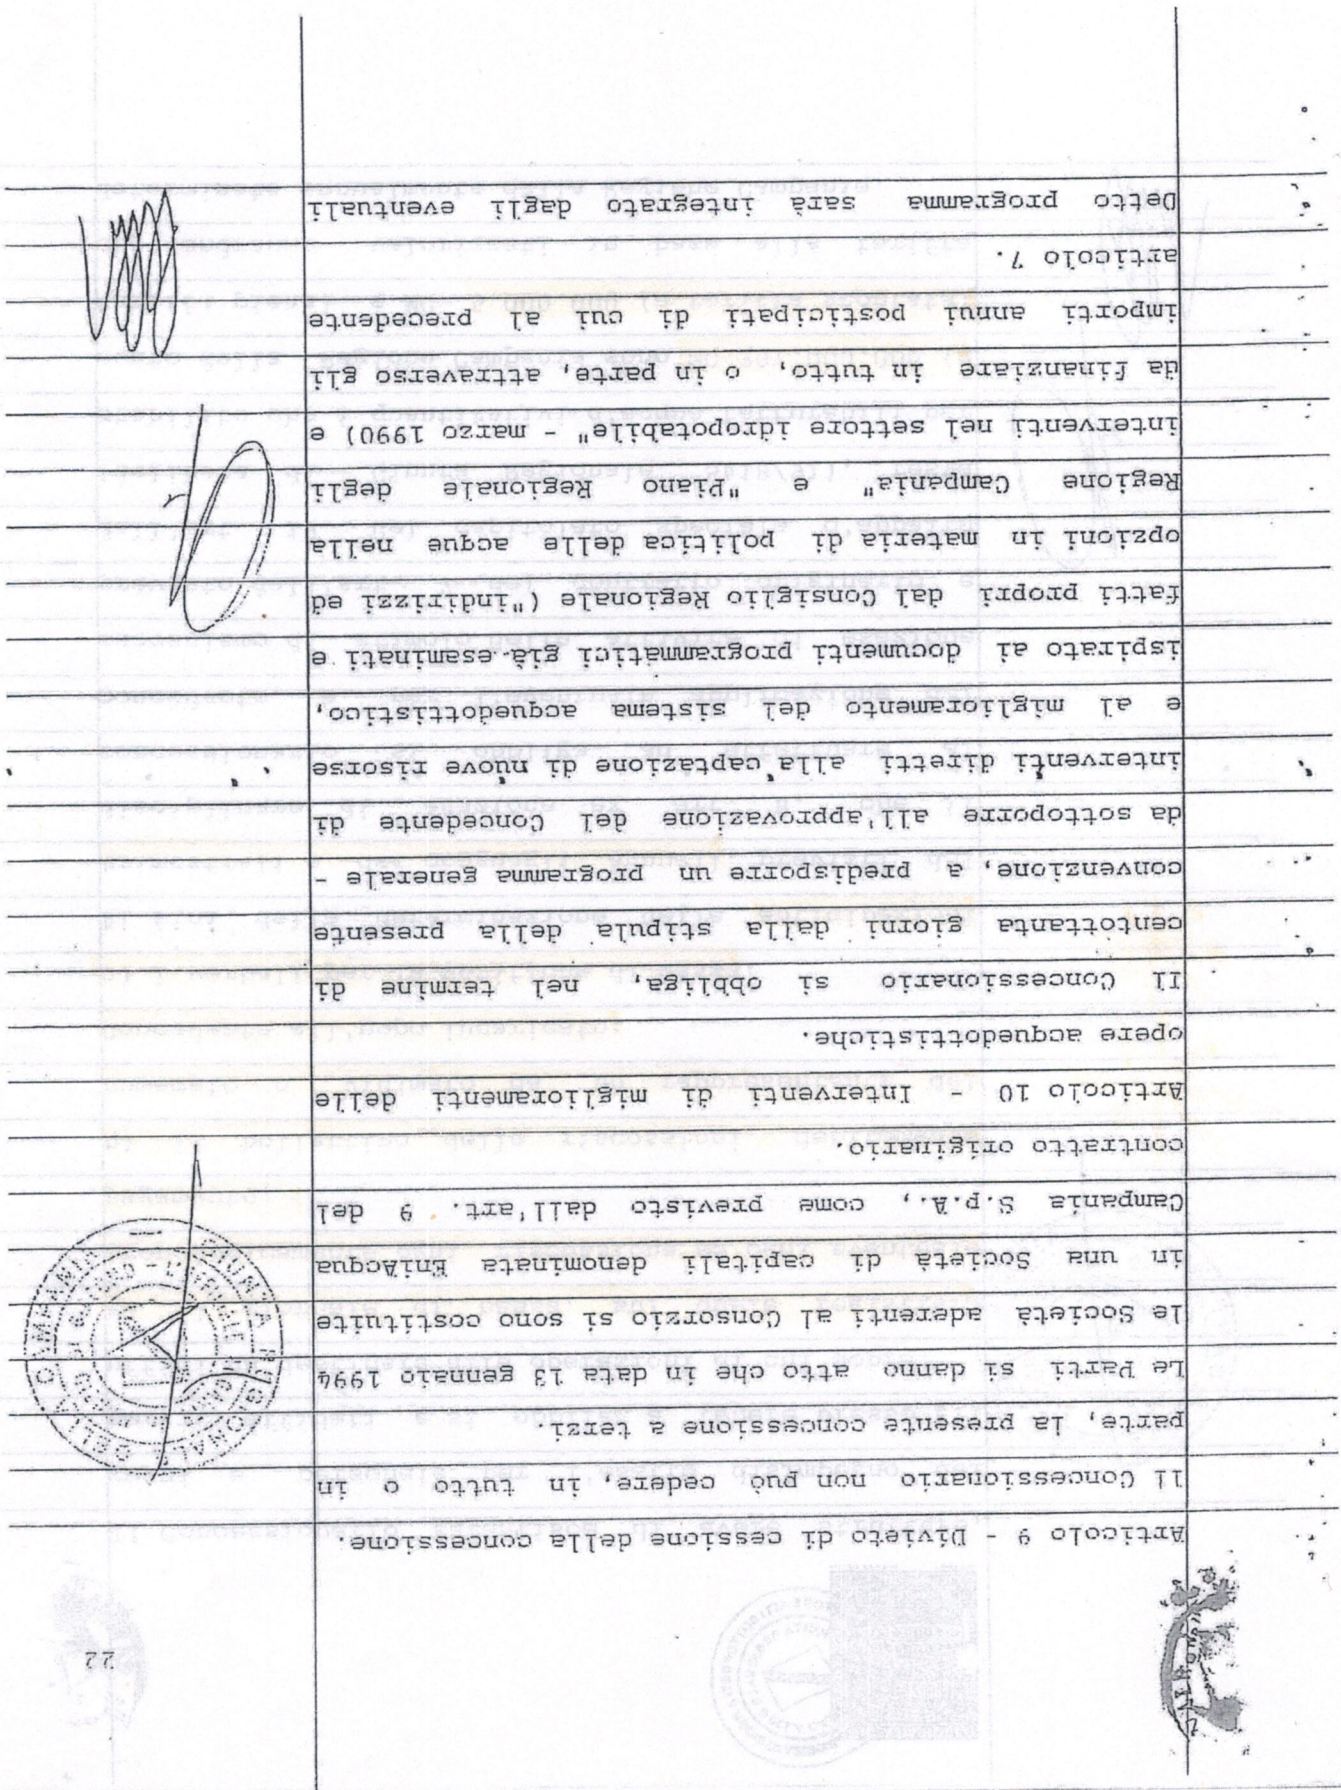 22
Articolo 9 - Divieto di cessione della concessione.
Il Concessionario non può cedere, in tutto o in
parte, la presente concessione a terzi.
Le Parti si danno atto che in data 13 gennaio 1994
le Società aderenti al Consorzio si sono costituite
in una Società di capitali denominata EniAcqua
Campania S.p.A., come previsto dall'art. 9 del
contratto originario.
Articolo 10 - Interventi di miglioramenti delle
opere acquedottistiche.
Il Concessionario si obbliga, nel termine di
centottanta giorni dalla stipula della presente
convenzione, a predisporre un programma generale -
da sottoporre all'approvazione del Concedente di
interventi diretti alla captazione di nuove risorse
e al miglioramento del sistema acquedottistico,
ispirato ai documenti programmatici già esaminati e
fatti propri dal Consiglio Regionale ("indirizzi ed
opzioni in materia di politica delle acque nella
Regione Campania" e "Piano Regionale degli
interventi nel settore idropotabile" - marzo 1990) e
da finanziare in tutto, o in parte, attraverso gli
importi annui posticipati di cui al precedente
articolo 7.
Detto programma sarà integrato dagli eventuali